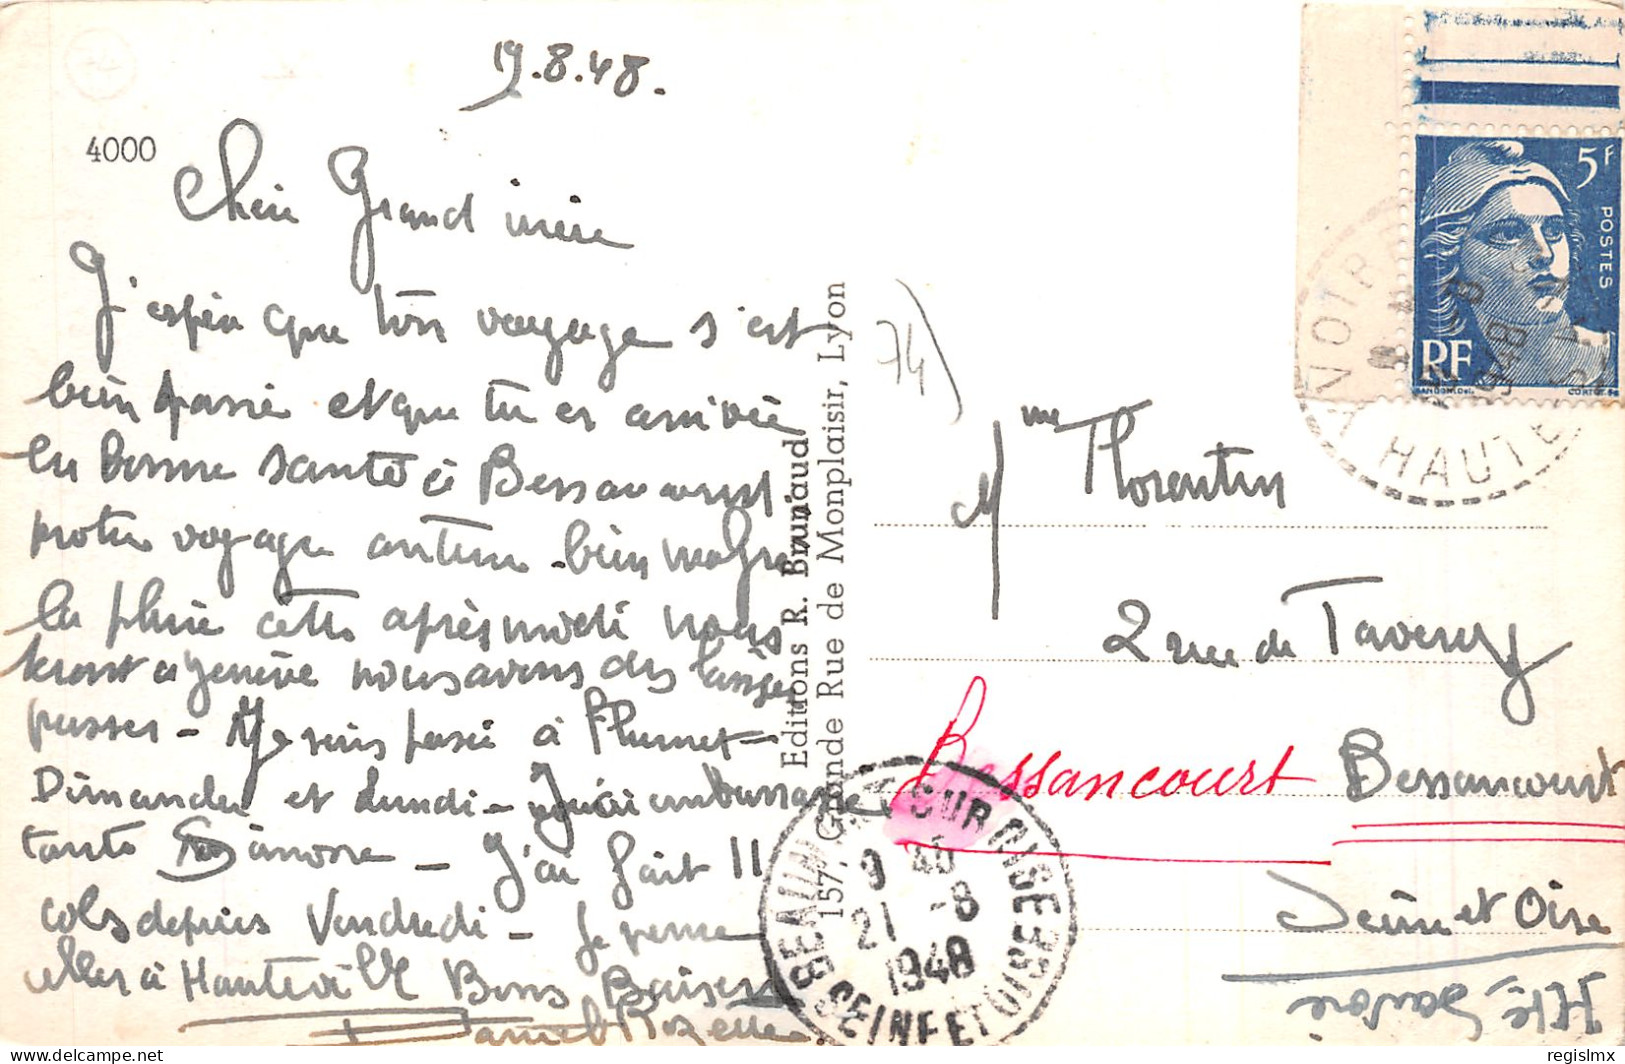 19.8.48.
4000
Chère Grand mère
J'espère que ton voyage s'est
bien passé et que tu es arrivée
en bonne santé à Bessancourt
notre voyage continue bien malgré
la pluie cette après midi nous
à Genève nous avons des
passer - Je suis passé à Flumet -
Dimanche et Lundi -
tante - J'ai fait 11
cols depuis Vendredi - Je pense
aller à Hauteville Bons Baisers
Daniel Rozette
Editions R. Brunjaud
157, Grande Rue de Monplaisir, Lyon
74)
5F
POSTES
RF
GANDON Del.
CORTOT Sc
HAUTE
Mme Florentin
2 rue de Taverny
Bessancourt Bessancourt
Seine et Oise
Hte Savoie
BEAUMONT SUR OISE
9 40
21 -8
1948
SEINE ET OISE
www.delcampe.net
regislmx